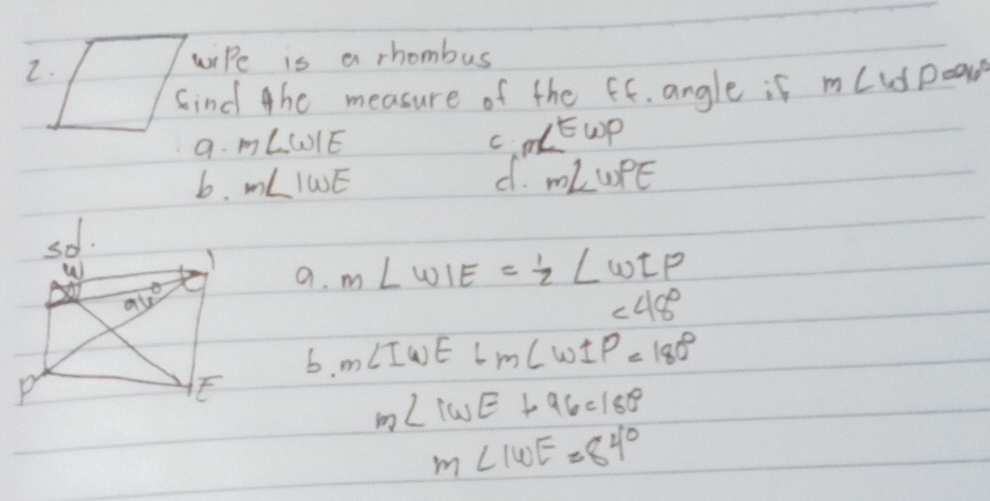 2.
wiPe is a rhombus
find the measure of the ff. angle if m∠WIP=96°
a. m∠WIE c. m∠EWP
b. m∠IWE d. m∠WPE
sol.
W I
96°
P E
a. m∠WIE = ½ ∠WIP
= 48°
b. m∠IWE + m∠WIP = 180°
m∠IWE + 96 = 180
m∠IWE = 84°